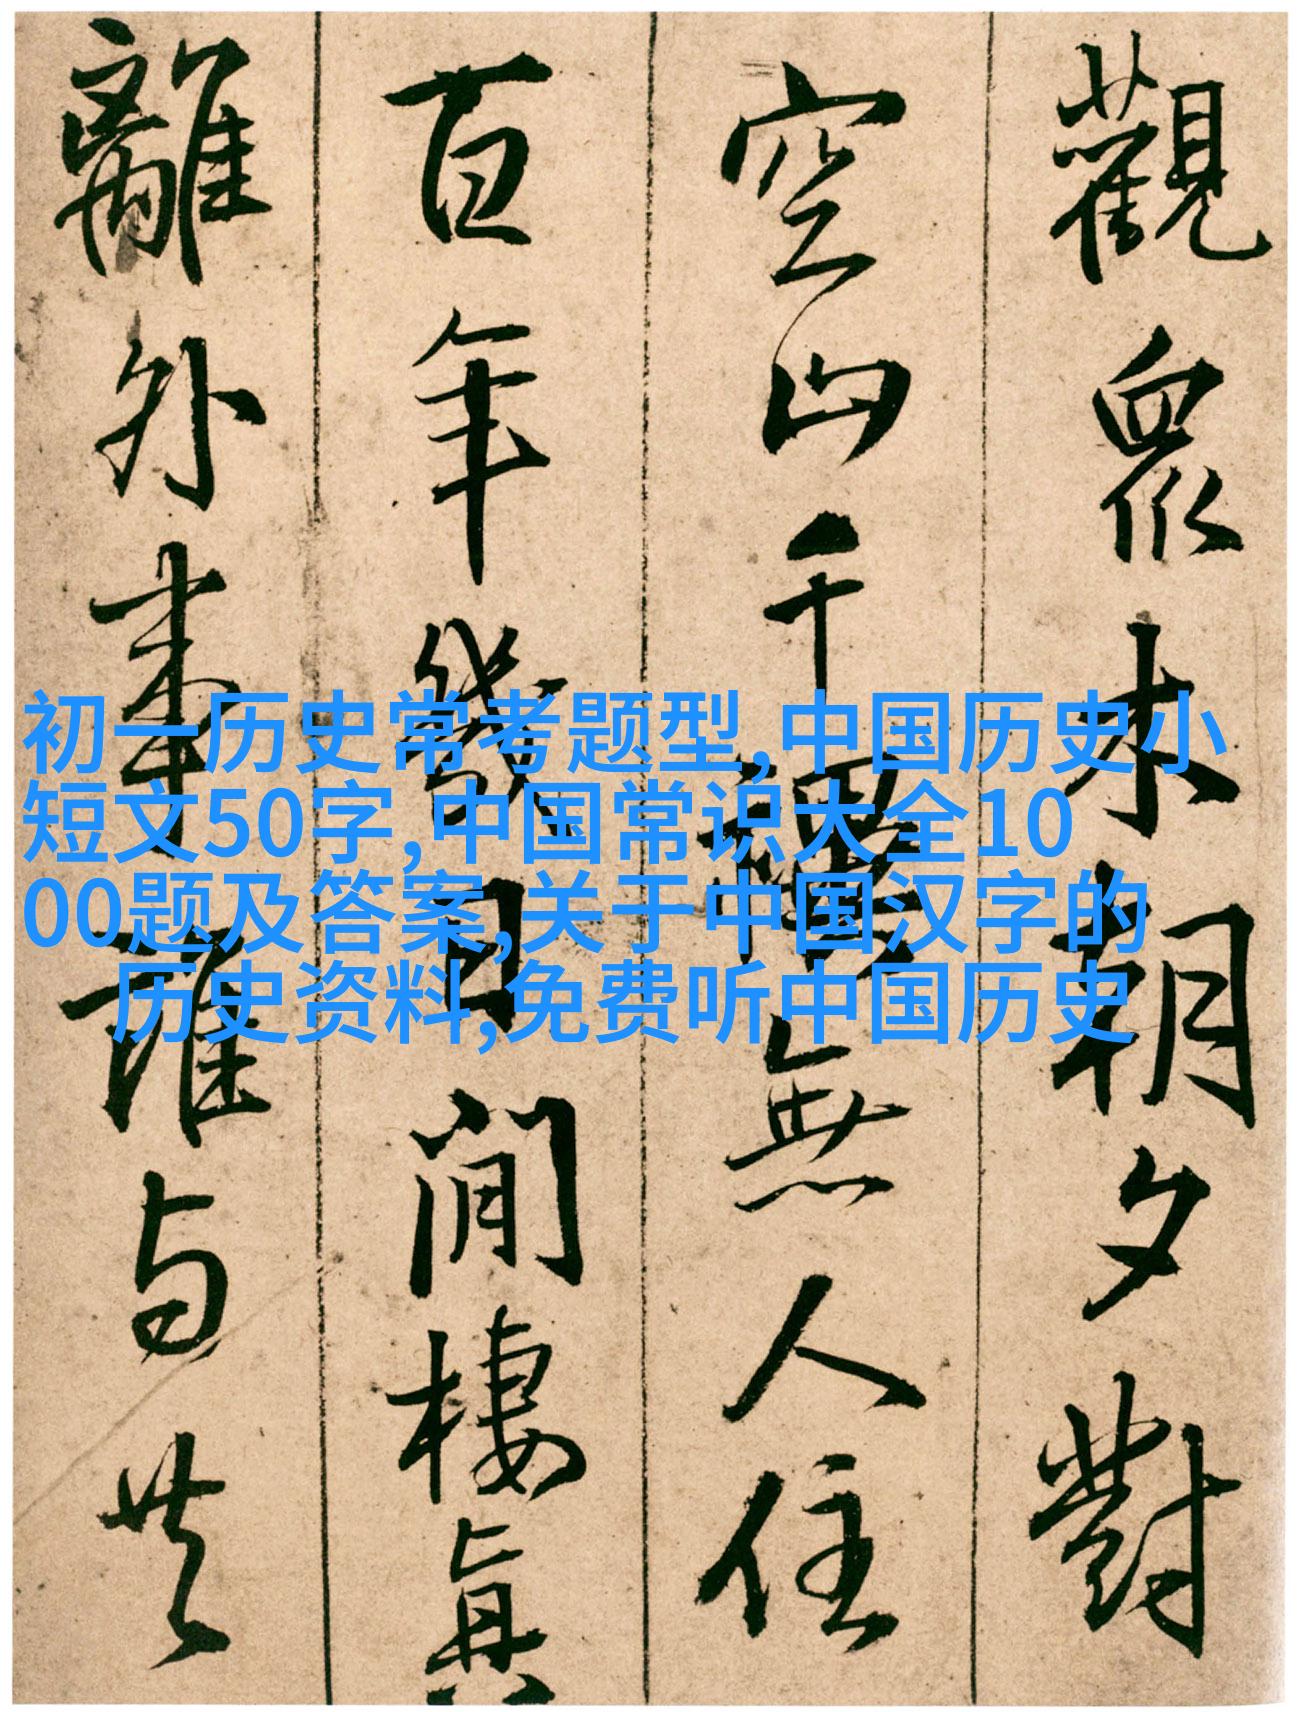 觀眾木朝夕對
空山千無人住
百年幾日閒棲真
離外事誰与共
初一历史常考题型,中国历史小
短文50字,中国常识大全10
00题及答案,关于中国汉字的
历史资料,免费听中国历史